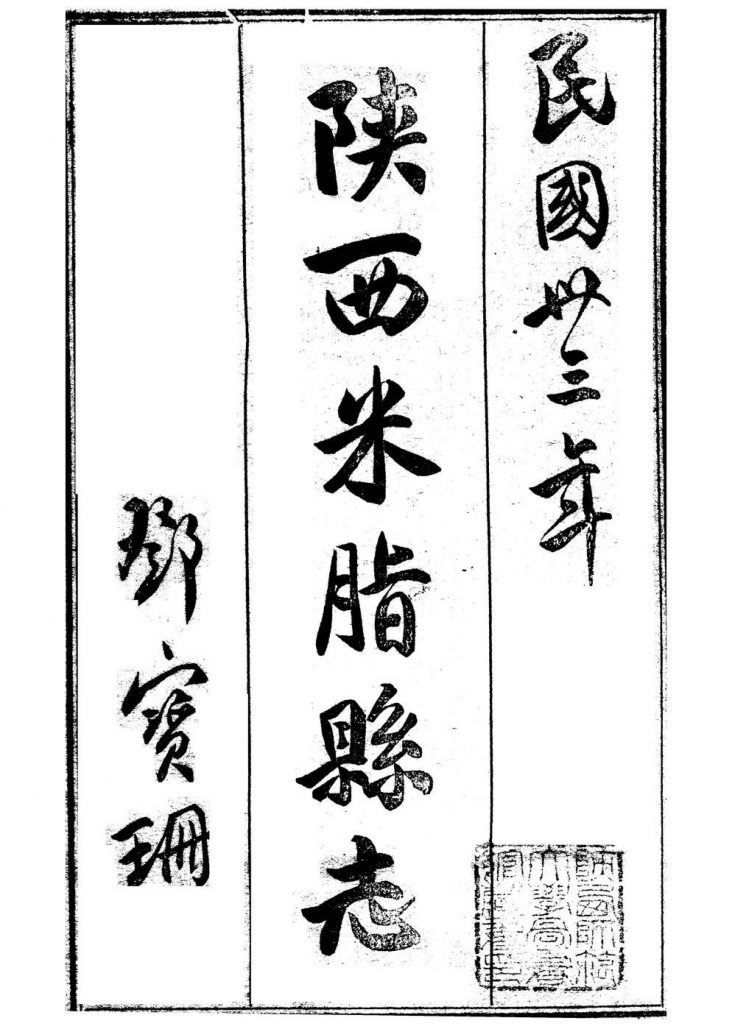 民國卅三年
陝西米脂縣志
鄧寶珊